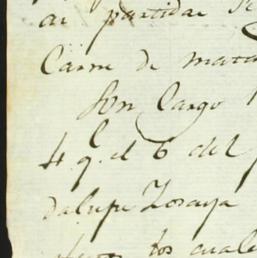 partidas
Carne de mata
Son Cargo
4 q. el 6 del
dalupe Zoraya
los cuale